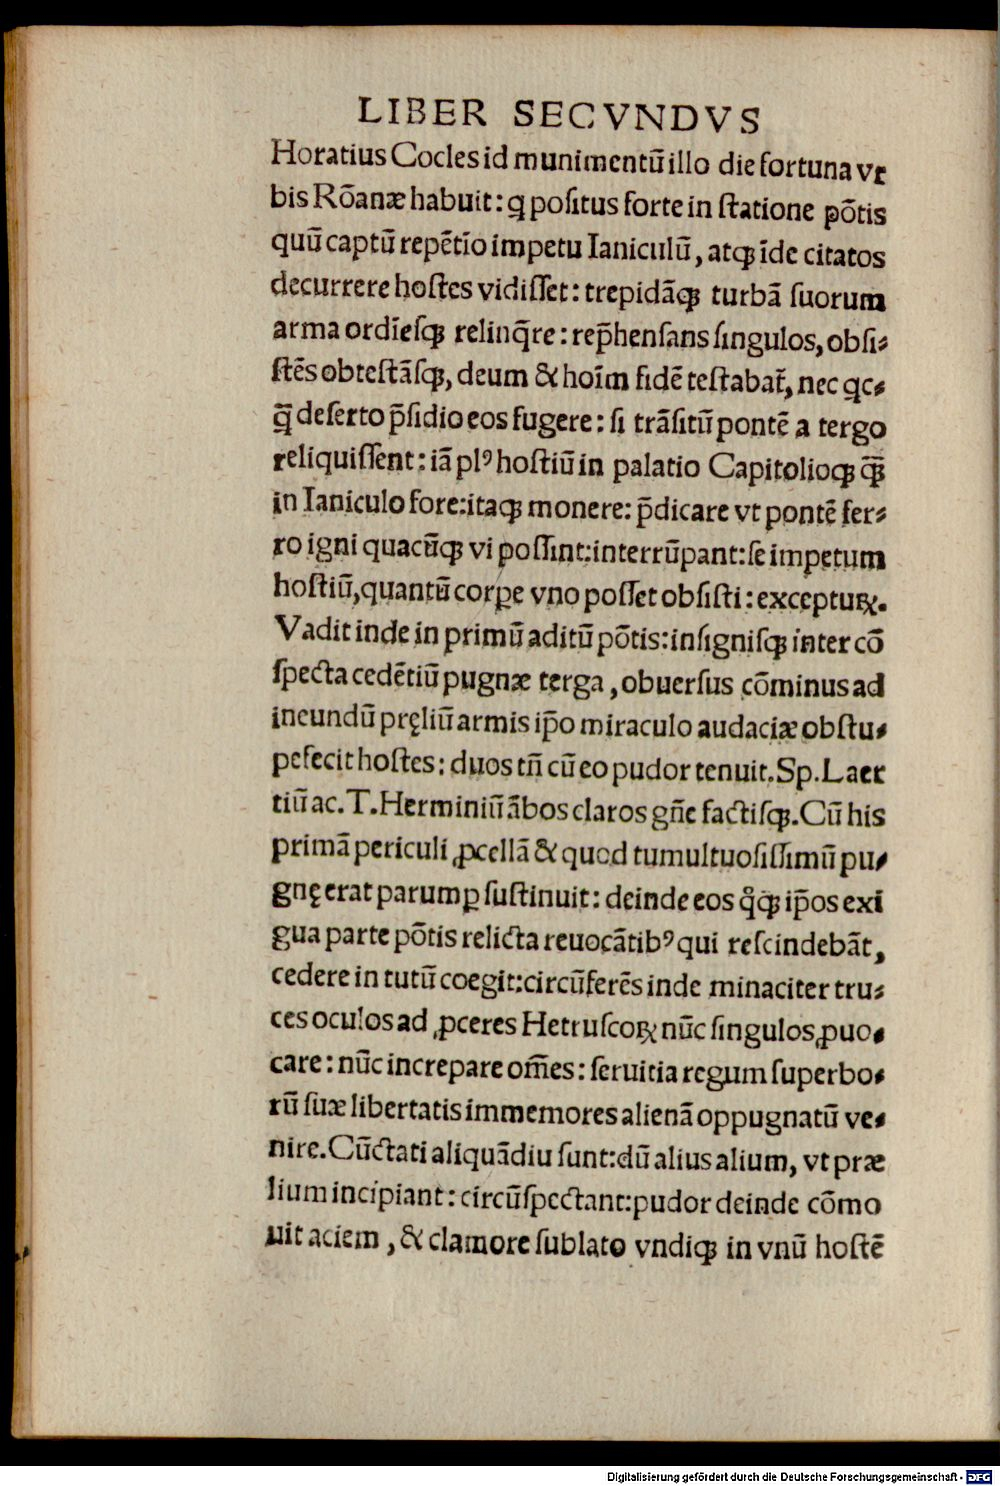 LIBER SECVNDVS
Horatius Cocles id munimentū illo die fortuna vr
bis Rōanæ habuit: ꝗ positus forte in ſtatione põtis
quū captū repētīo impetu Ianiculū, atqꝫ īde citatos
decurrere hoſtes vidiſſet: trepidāqꝫ turbā ſuorum
arma ordīesqꝫ relinq̄re: rep̄henſans ſingulos, obſi⸗
ſtēs obteſtāſqꝫ, deum & hoīm fidē teſtabat̄, nec qc⸗
q̄ deſerto p̄ſidio eos fugere: ſi trāſitū pontē a tergo
reliquiſſent: iā plꝰ hoſtiū in palatio Capitolioqꝫ q̄
in Ianiculo fore: itaqꝫ monere: p̄dicare vt pontē fer⸗
ro igni quacūqꝫ vi poſſint: interrūpant: ſe impetum
hoſtiū, quantū corꝑe vno poſſet obſiſti: exceptuꝝ.
Vadit inde in primū aditū pōtis: inſigniſqꝫ inter cō
ſpecta cedētiū pugnæ terga, obuerſus cōminus ad
ineundū pręliū armis ip̄o miraculo audaciæ obſtu⸗
pefecit hoſtes: duos tn̄ cū eo pudor tenuit. Sp. Laer
tiū ac. T. Herminiū ābos claros gn̄e factiſqꝫ. Cū his
primā periculi ꝓcellā & quod tumultuoſiſſimū pu⸗
gnę erat parumꝑ ſuſtinuit: deinde eos q̊qꝫ ip̄os exi
gua parte pōtis relicta reuocātibꝰ qui reſcindebāt,
cedere in tutū coegit: circūferēs inde minaciter tru⸗
ces oculos ad ꝓceres Hetruſcoꝝ nūc ſingulos ꝓuo⸗
care: nūc increpare om̄es: ſeruitia regum ſuperbo⸗
rū ſuæ libertatis immemores alienā oppugnatū ve⸗
nire. Cūctati aliquādiu ſunt: dū alius alium, vt præ
lium incipiant: circūſpectant: pudor deinde cōmo
uit aciem, & clamore ſublato vndiqꝫ in vnū hoſtē
Digitalisierung gefördert durch die Deutsche Forschungsgemeinschaft - DFG